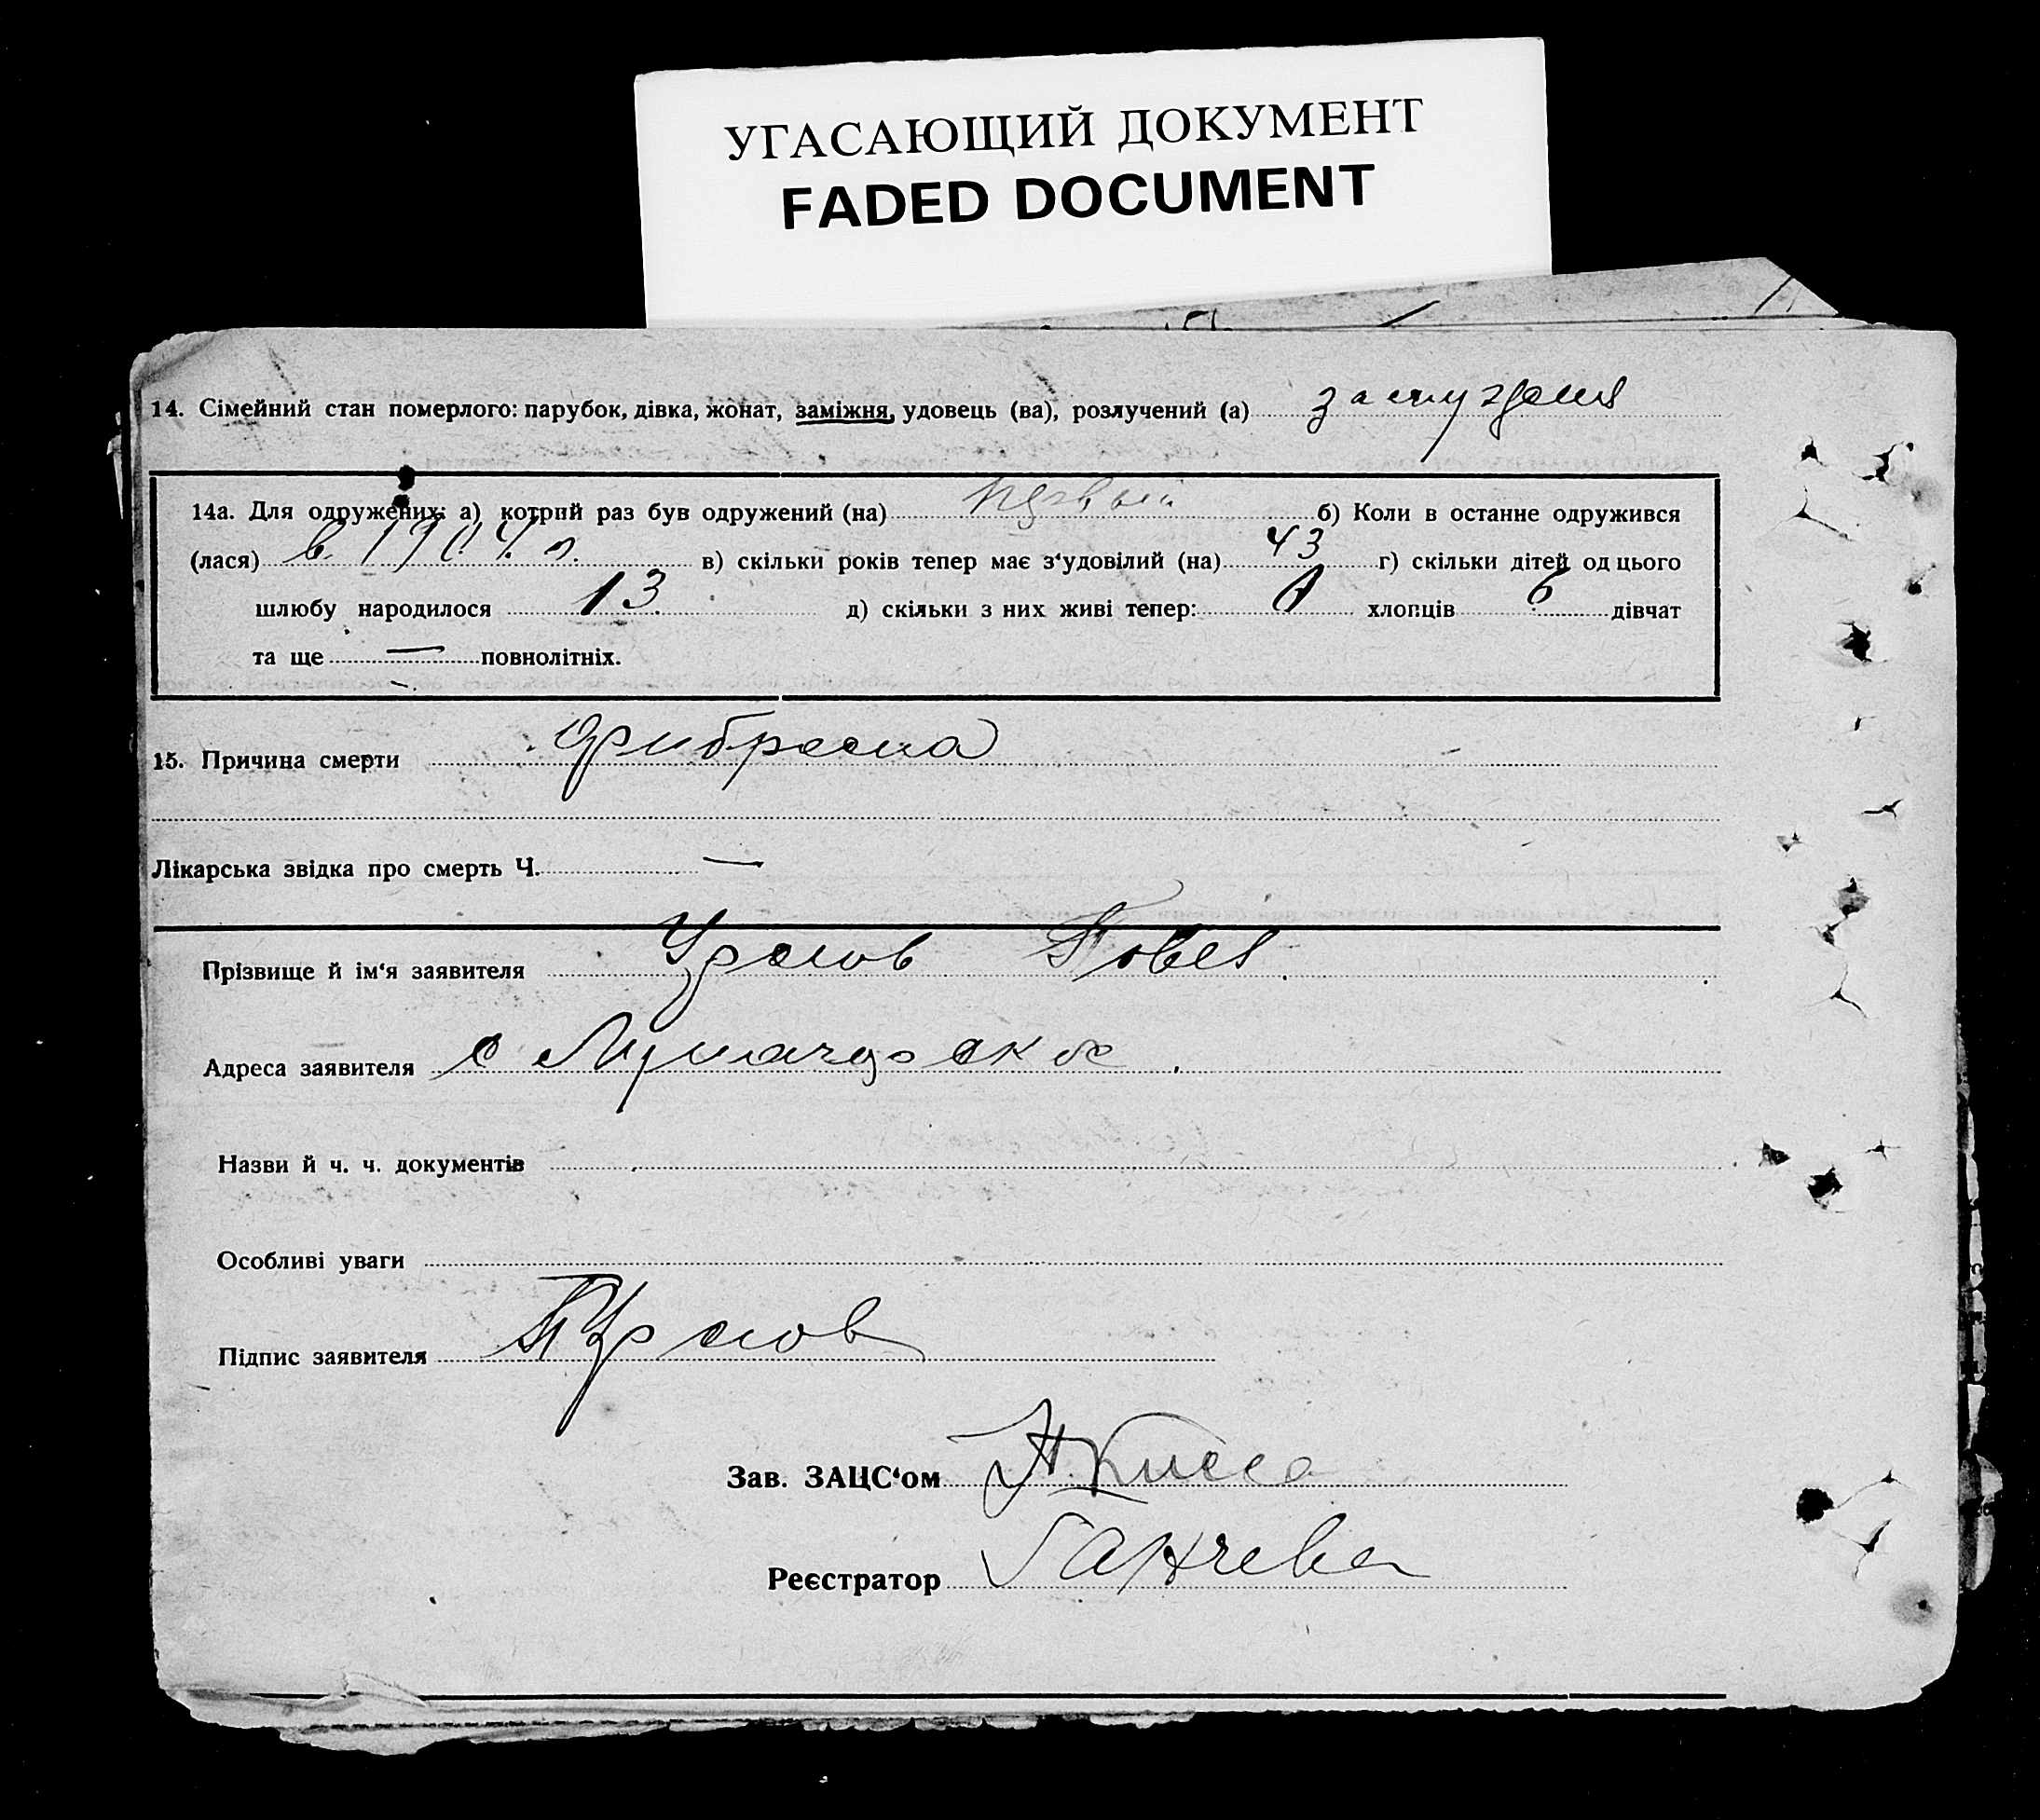 УГАСАЮЩИЙ ДОКУМЕНТ
FADED DOCUMENT
14. Сімейний стан померлого: парубок, дівка, жонат, заміжня, удовець (ва), розлучений (а) замужняя
14а. Для одружених: а) котрий раз був одружений (на) первый б) Коли в останнє одружився
(лася) в 1904 г. в) скільки років тепер має з‘удовілий (на) 43 г) скільки дітей од цього
шлюбу народилося 13 д) скільки з них живі тепер: хлопців 6 дівчат
та ще — повнолітніх.
15. Причина смерти
Лікарська звідка про смерть Ч. —
Прізвище й ім‘я заявителя
Адреса заявителя с
Назви й ч. ч. документів
Особливі уваги
Підпис заявителя
Зав. ЗАЦС‘ом Н. Кисса
Реєстратор Ганчева